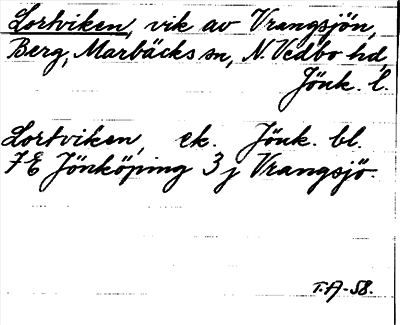 Lortviken, vik av Vrangsjön,
Berg, Marbäcks sn, N. Vedbo hd,
Jönk. l.
Lortviken, ek. Jönk. bl.
7E Jönköping 3j Vrangsjö.
T.A-58.